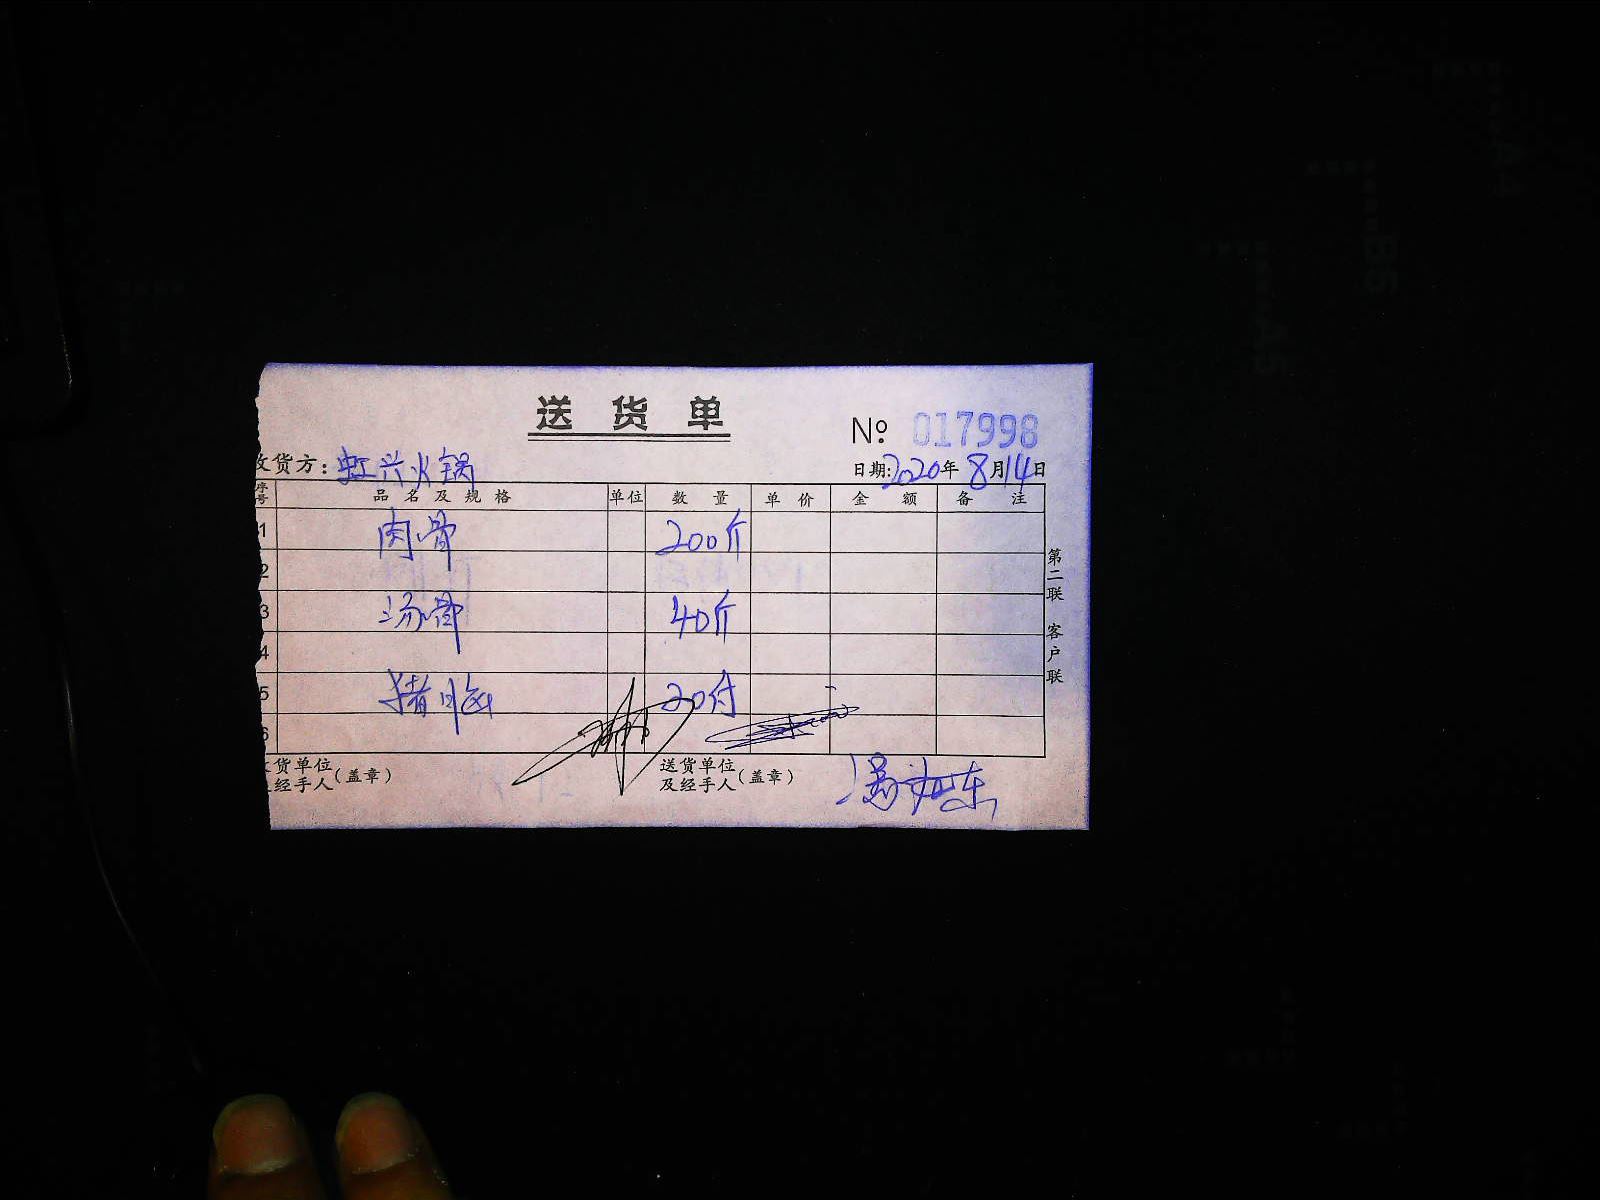 送货单
№ 017998
收货方：虹兴火锅 日期:2020年8月14日
序号 品名及规格 单位 数量 单价 金额 备注
1 肉骨 200斤
2
3 汤骨 40斤
4
5 猪脑 20付
6
收货单位及经手人(盖章) 送货单位及经手人(盖章)
第二联 客户联
B5
A5